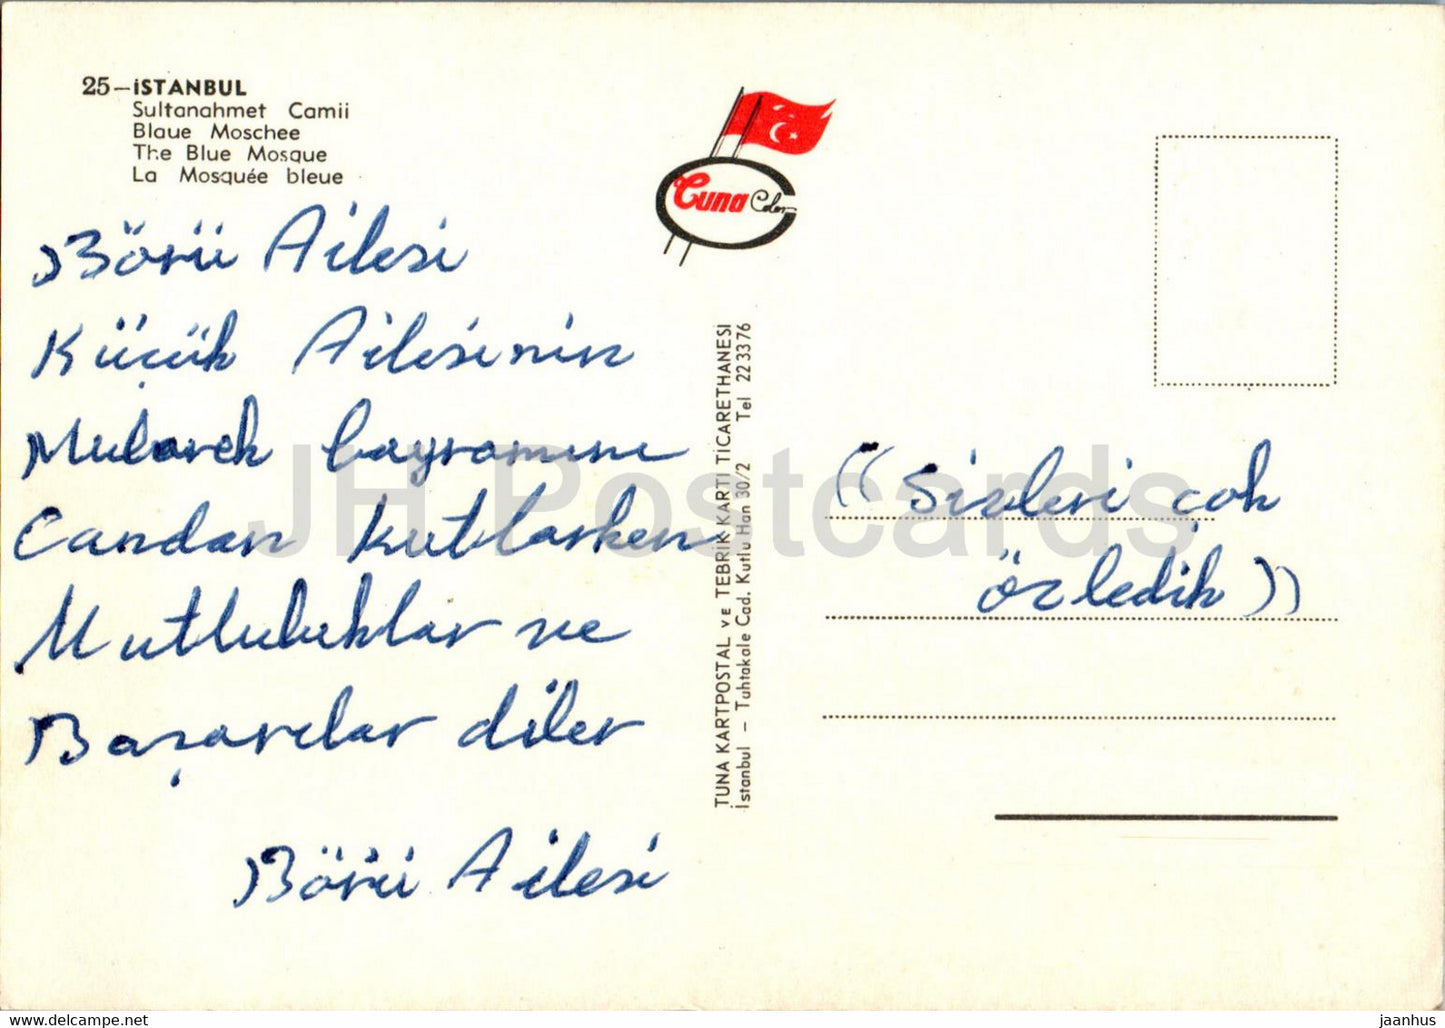 25-İSTANBUL
Sultanahmet Camii
Blaue Moschee
The Blue Mosque
La Mosquée bleue
Tuna Color
Börü Ailesi
Küçük Ailesinin
Mubarek bayramını
Candan Kutlarken
Mutluluklar ve
Başarılar diler
Börü Ailesi
TUNA KARTPOSTAL ve TEBRİK KARTI TİCARETHANESİ
İstanbul - Tuhtakale Cad. Kutlu Han 30/2 Tel 223376
(( Sizleri çok
özledik ))
JH Postcards
https://www.hippostcard.com
jaanhus